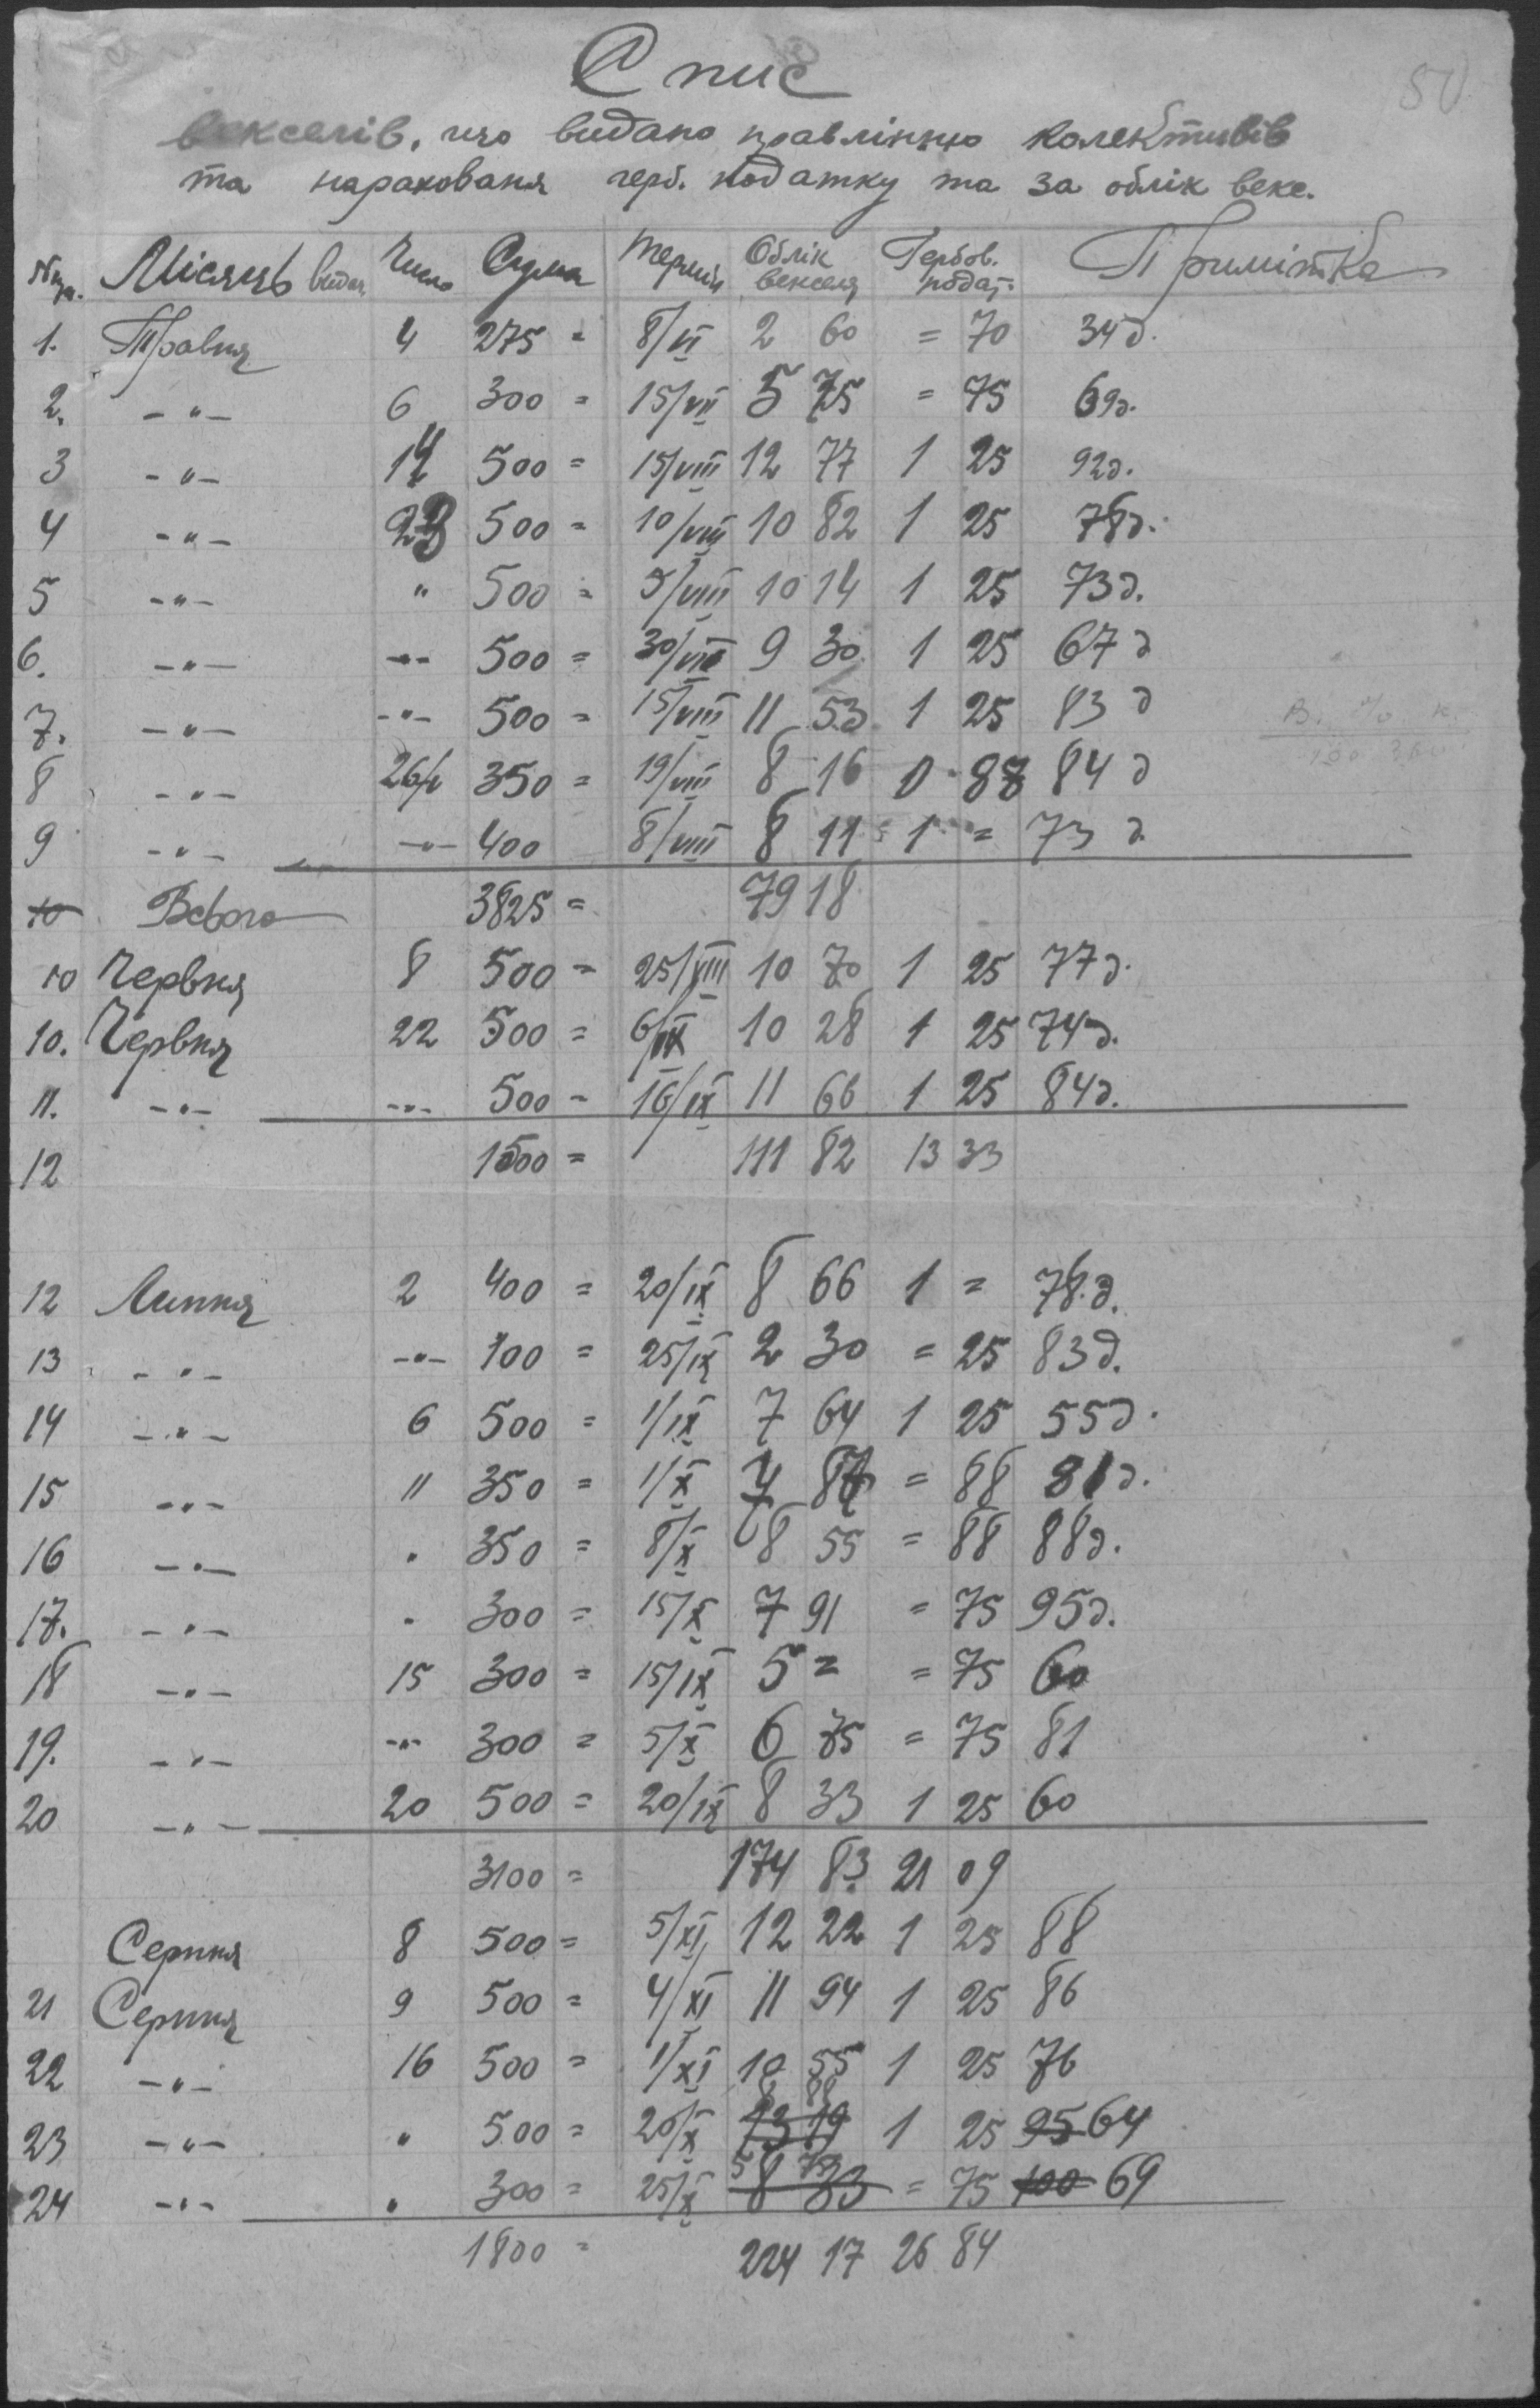 Спис
векселів, що видано правлінню колективів
та нараховання герб. податку та за облік векс.
№ п/п. Місяць видач. Число Сума Термін Облік векселя Гербов. подат. Примітка
1. Травня 4 275 = 8/VI 2 60 = 70 34 д.
2. -"- 6 300 = 15/VII 5 75 = 75 69 д.
3 -"- 14 500 = 15/VIII 12 77 1 25 92 д.
4 -"- 23 500 = 10/VIII 10 82 1 25 78 д.
5 -"- " 500 = 5/VIII 10 14 1 25 73 д.
6. -"- -"- 500 = 30/VII 9 30 1 25 67 д
7. -"- -"- 500 = 15/VIII 11 53 1 25 83 д
8 -"- 26/V 350 = 19/VIII 8 16 0 88 84 д
9 -"- -"- 400 8/VIII 8 11 1 = 73 д.
10 Всього 3825 = 79 18
10 Червня 8 500 = 25/VIII 10 70 1 25 77 д.
10. Червня 22 500 = 6/IX 10 28 1 25 74 д.
11. -"- -"- 500 = 16/IX 11 66 1 25 84 д.
12 1500 = 111 82 13 33
12 Липня 2 400 = 20/IX 8 66 1 = 78 д.
13 -"- -"- 100 = 25/IX 2 30 = 25 83 д.
14 -"- 6 500 = 1/IX 7 64 1 25 55 д.
15 -"- 11 350 = 1/X 7 87 = 88 81 д.
16 -"- " 350 = 8/X 8 55 = 88 88 д.
17. -"- " 300 = 15/X 7 91 = 75 95 д.
18 -"- 15 300 = 15/IX 5 = = 75 60
19. -"- -"- 300 = 5/X 6 75 = 75 81
20 -"- 20 500 = 20/IX 8 33 1 25 60
3100 = 174 83 21 09
Серпня 8 500 = 5/XI 12 22 1 25 88
21 Серпня 9 500 = 4/XI 11 94 1 25 86
22 -"- 16 500 = 1/XI 10 55 1 25 76
8 88
23 -"- " 500 = 20/X 13 19 1 25 95 64
5 75
24 -"- " 300 = 25/X 8 33 = 75 100 69
1800 = 224 17 26 84